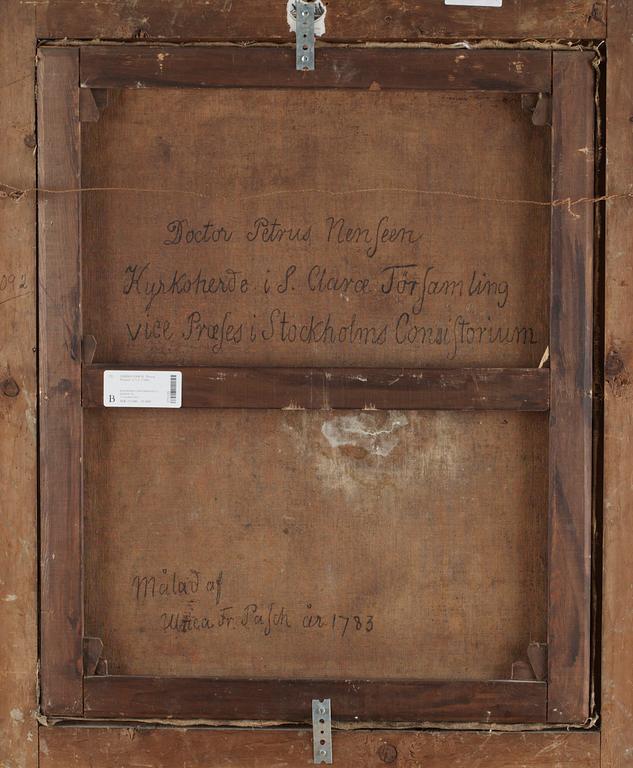 Doctor Petrus Nenſeen
Kyrkoherde i S. Claræ Förſamling
vice Præſes i Stockholms Conſiſtorium
B
Målad af
Ulrica Fr. Paſch år 1783